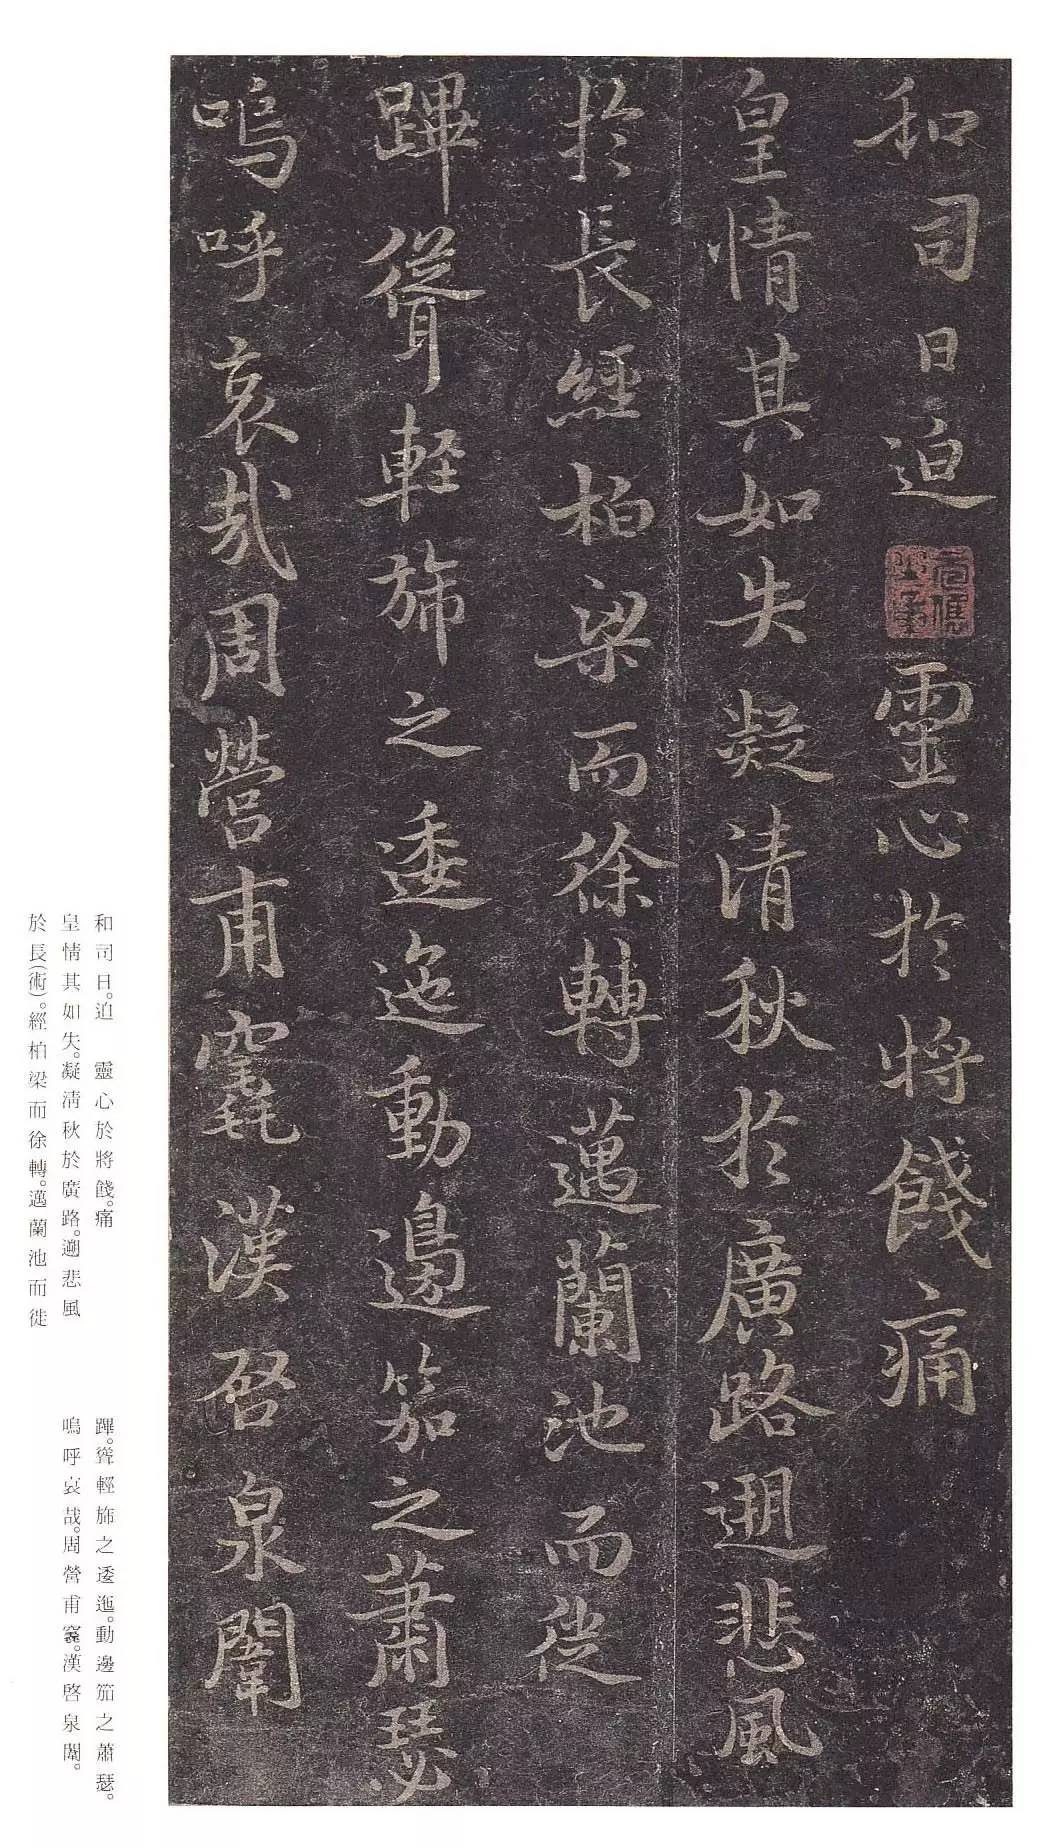 和司日迫靈心於將餞痛
皇情其如失凝清秋於廣路遡悲風
於長經柏梁而徐轉邁蘭池而徙
蹕聳輕旆之逶迤動邊笳之蕭瑟
嗚呼哀哉周營甫窆漢啓泉闈
和司日。迫　靈心於將餞。痛
皇情其如失。凝清秋於廣路。遡悲風
於長(術)。經柏梁而徐轉。邁蘭池而徙
蹕。聳輕旆之逶迤。動邊笳之蕭瑟。
嗚呼哀哉。周營甫竁。漢啓泉闈。